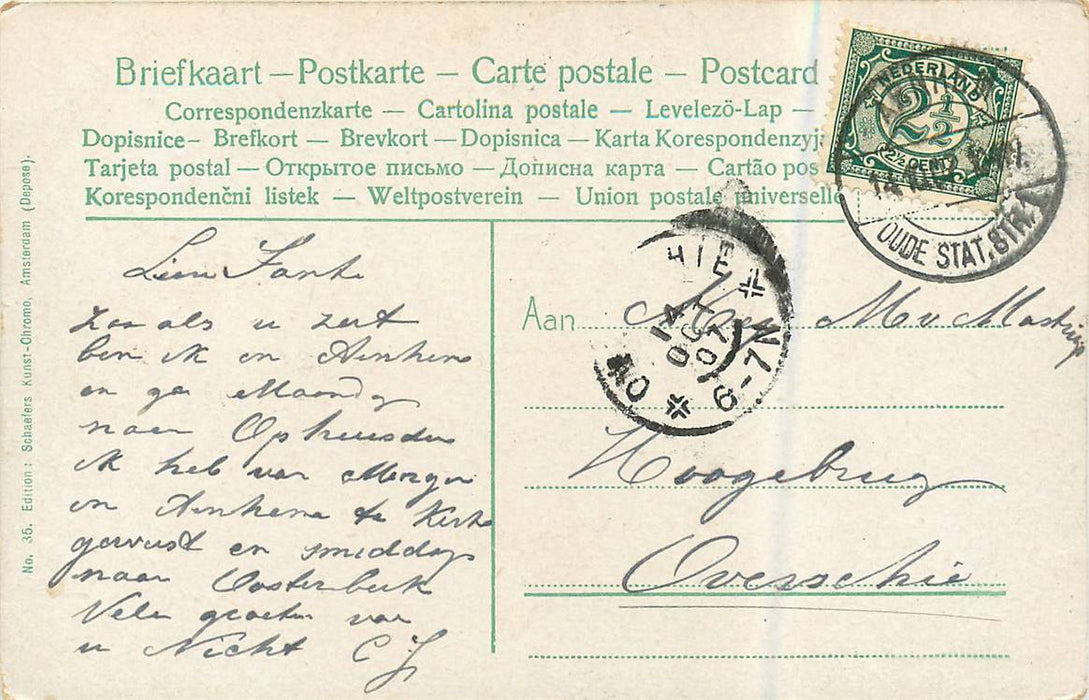 Briefkaart — Postkarte — Carte postale — Postcard
Correspondenzkarte — Cartolina postale — Levelezö-Lap —
Dopisnice — Brefkort — Brevkort — Dopisnica — Karta Korespondenzyj
Tarjeta postal — Открытое письмо — Дописна карта — Cartão pos
Korespondenční listek — Weltpostverein — Union postale universelle
NEDERLAND
2½
2½ CENT
OUDE STAT. STR. 1
No. 35. Edition: Schaefers Kunst-Chromo, Amsterdam (Depose).
HIE
14 OCT 07
6-7V
OV
Lieve Tante
Zoo als u ziet
ben ik in Arnhem
en ga Maandag
naar Opheusden
ik heb van Morgen
in Arnhem te Kerk
geweest en smiddags
naar Oosterbeek
Vele groeten van
u Nicht C J
Aan Mej M v
Hoogebrug
Overschie